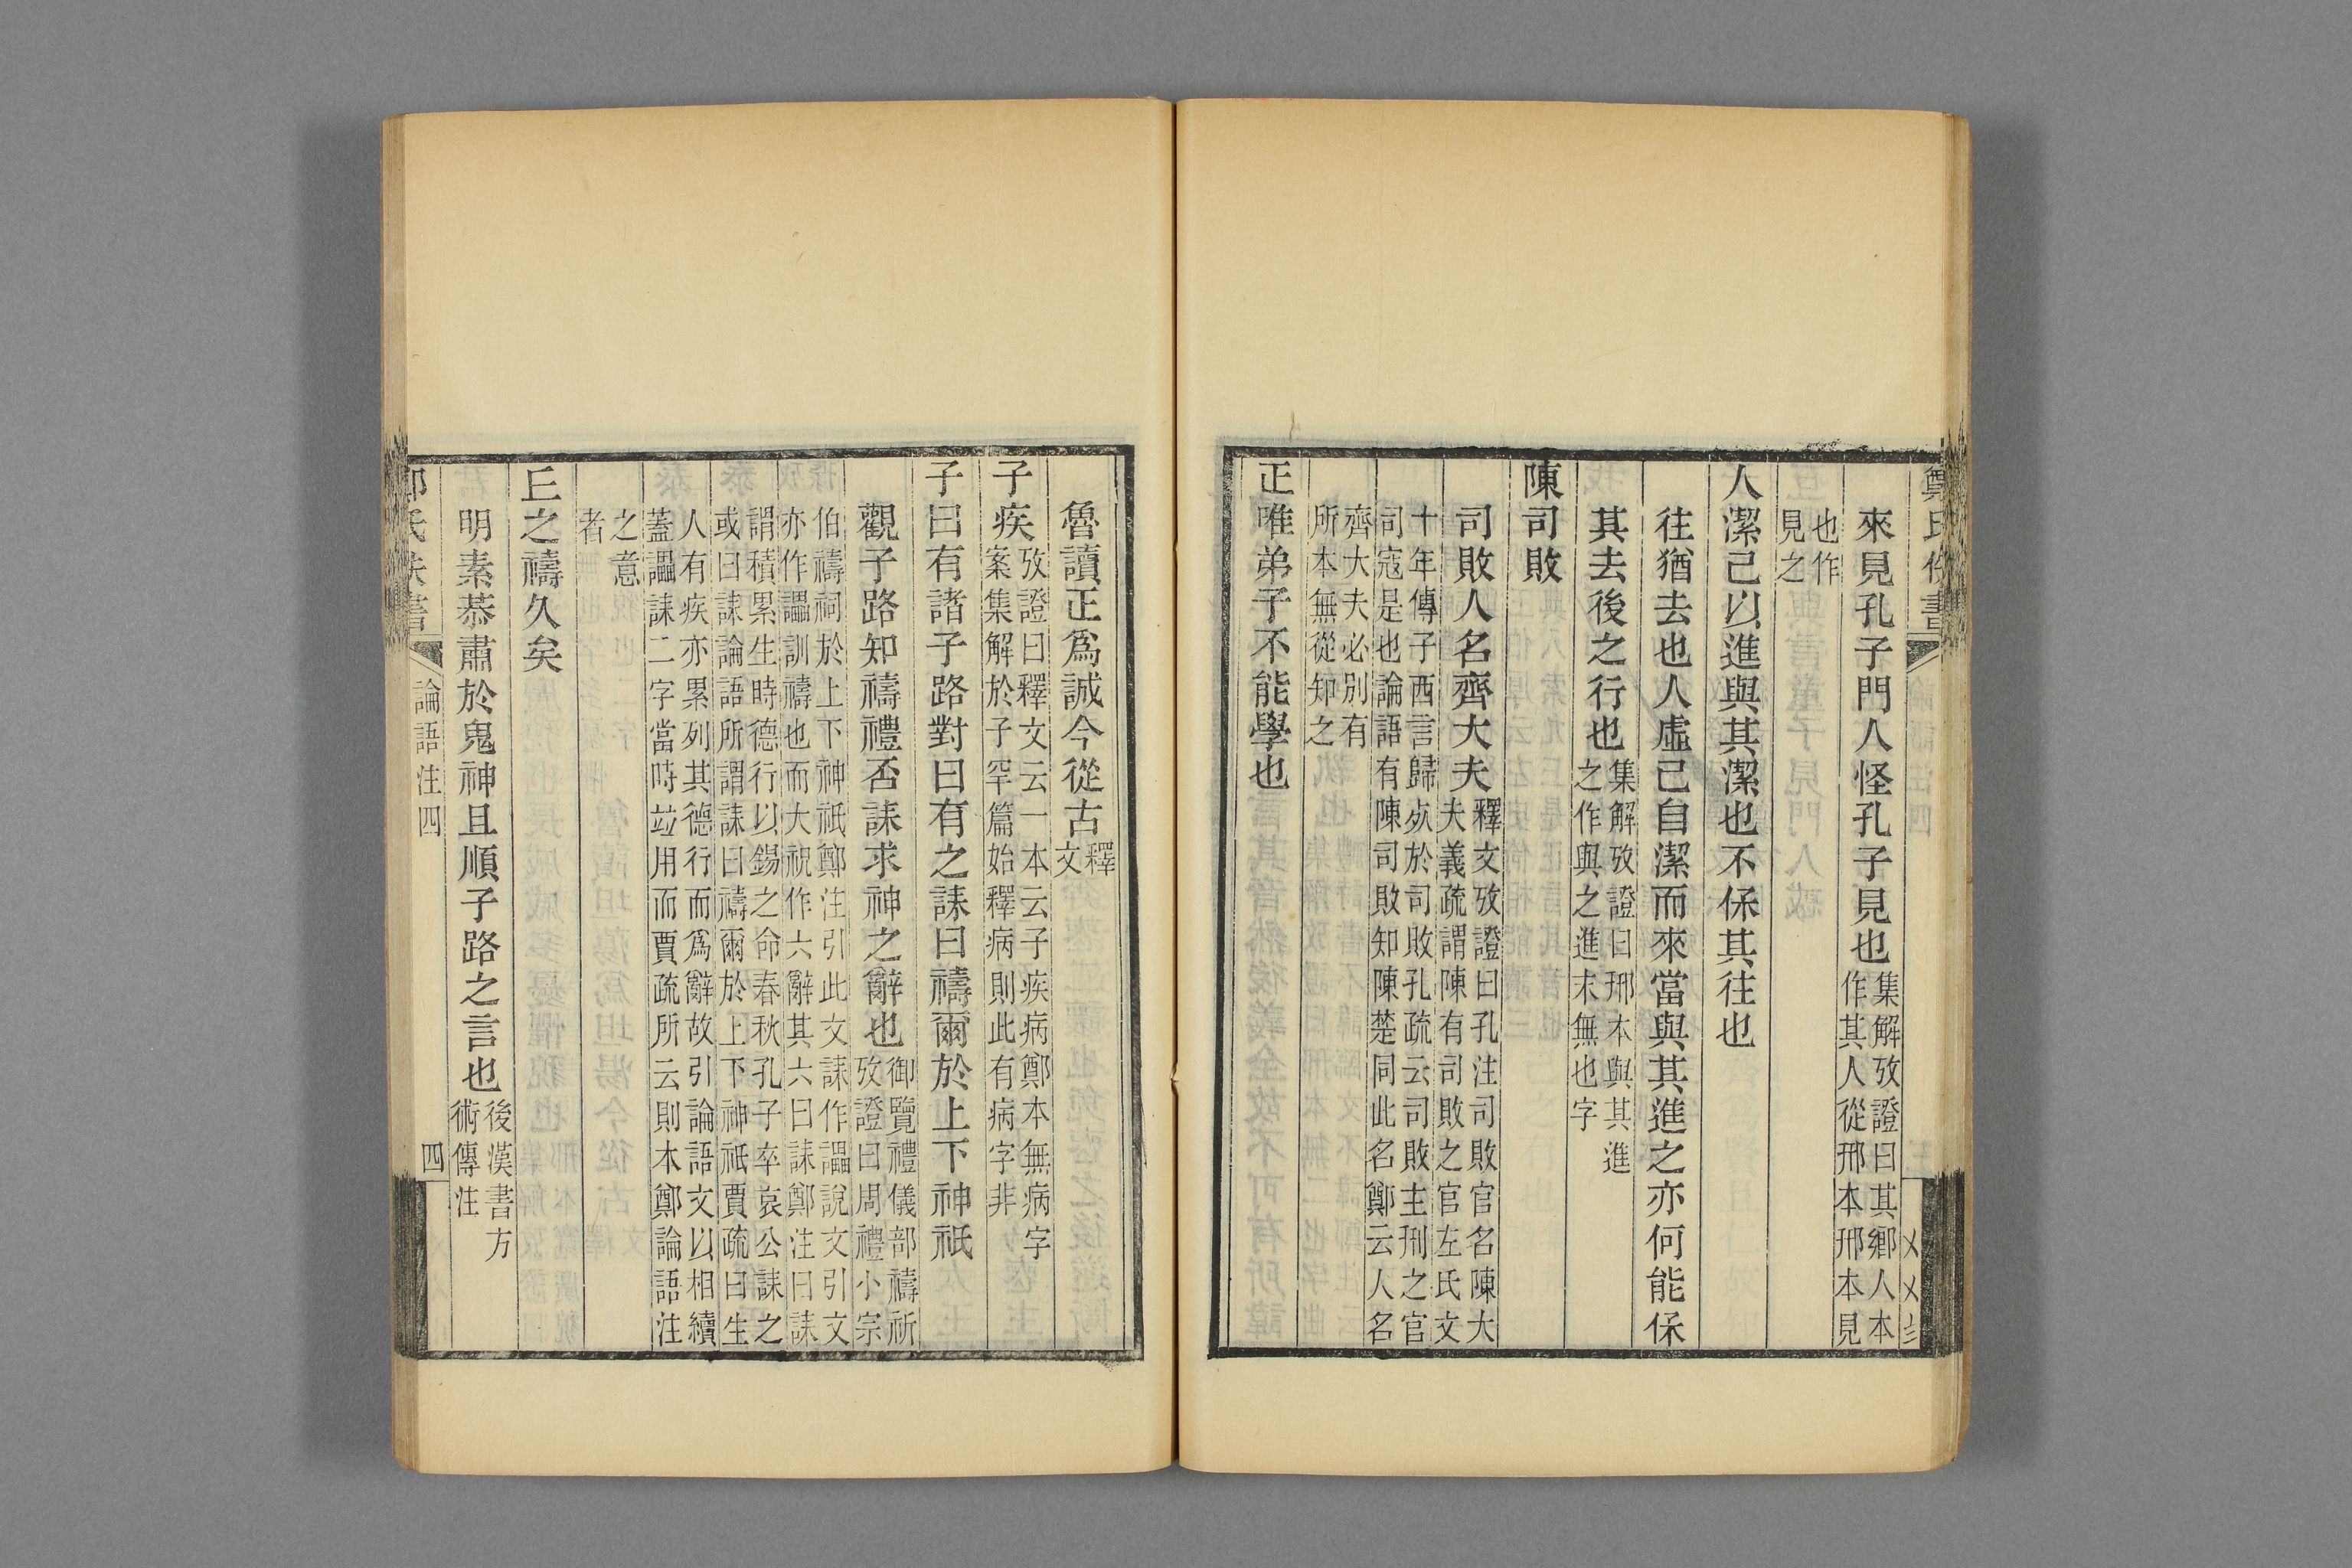 鄭氏佚書
來見孔子門人怪孔子見也集解攷證曰其鄉人本
作其人從邢本邢本見
也作
見之
人潔己以進與其潔也不保其往也
往猶去也人虛己自潔而來當與其進之亦何能保
其去後之行也集解攷證曰邢本與其進
之作與之進末無也字
陳司敗
司敗人名齊大夫釋文攷證曰孔注司敗官名陳大
夫義疏謂陳有司敗之官左氏文
十年傳子西言歸死於司敗孔疏云司敗主刑之官
司寇是也論語有陳司敗知陳楚同此名鄭云人名
齊大夫必別有
所本無從知之
正唯弟子不能學也
魯讀正爲誠今從古釋
文
子疾攷證曰釋文云一本云子疾病鄭本無病字
案集解於子罕篇始釋病則此有病字非
子曰有諸子路對曰有之誄曰禱爾於上下神祇
觀子路知禱禮否誄求神之辭也御覽禮儀部禱祈
攷證曰周禮小宗
伯禱祠於上下神祇鄭注引此文誄作讄說文引文
亦作讄訓禱也而大祝作六辭其六曰誄鄭注曰誄
謂積累生時德行以錫之命春秋孔子卒哀公誄之
或曰誄論語所謂誄曰禱爾於上下神祇賈疏曰生
人有疾亦累列其德行而爲辭故引論語文以相續
蓋讄誄二字當時竝用而賈疏所云則本鄭論語注
之意
者
丘之禱久矣
明素恭肅於鬼神且順子路之言也後漢書方
術傳注
論語注四
四